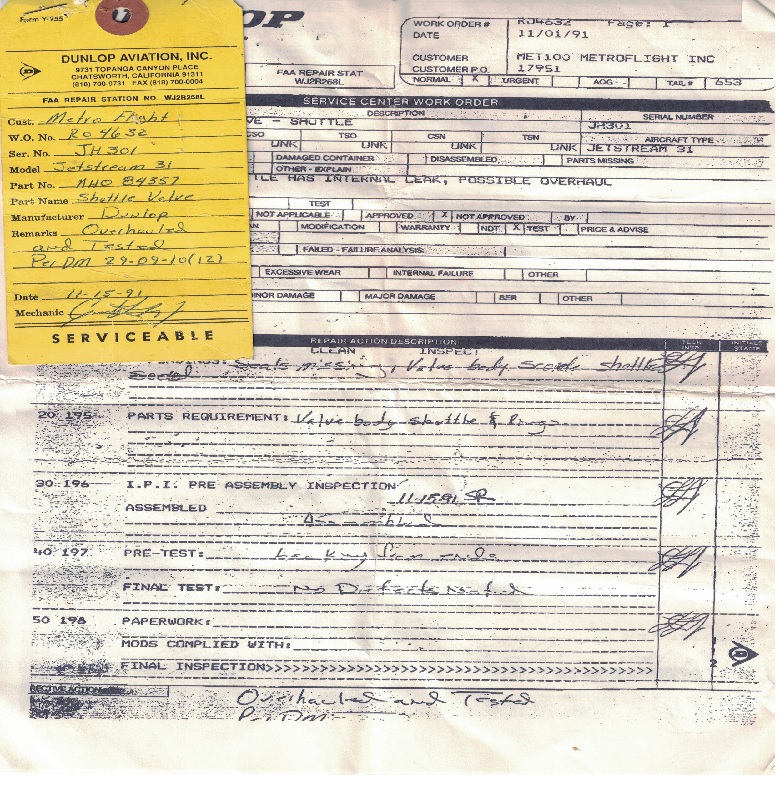 Form Y-955
DUNLOP AVIATION, INC.
9731 TOPANGA CANYON PLACE
CHATSWORTH, CALIFORNIA 91311
(818) 700-9731 FAX (818) 700-0004
FAA REPAIR STATION NO. WJ2R268L
Cust. Metro Flight
W.O. No. RO4632
Ser. No. JH301
Model Jetstream 31
Part No. AHO 84357
Part Name Shuttle Valve
Manufacturer Dunlop
Remarks Overhauled
and Tested
Per DM 29-09-10(12)
Date 11-15-91
Mechanic
SERVICEABLE
OP
FAA REPAIR STAT
WJ2R268L
WORK ORDER # RO4632 Page: 1
DATE 11/01/91
CUSTOMER MET100 METROFLIGHT INC
CUSTOMER P.O. 17951
NORMAL X URGENT AOG TAIL # 653
SERVICE CENTER WORK ORDER
DESCRIPTION SERIAL NUMBER
VE - SHUTTLE JH301
CSO TSO CSN TSN AIRCRAFT TYPE
UNK UNK UNK UNK JETSTREAM 31
DAMAGED CONTAINER DISASSEMBLED PARTS MISSING
OTHER - EXPLAIN
TLE HAS INTERNAL LEAK, POSSIBLE OVERHAUL
TEST
NOT APPLICABLE APPROVED X NOT APPROVED BY
MODIFICATION WARRANTY NDT X TEST PRICE & ADVISE
FAILED - FAILURE ANALYSIS:
EXCESSIVE WEAR INTERNAL FAILURE OTHER
MINOR DAMAGE MAJOR DAMAGE BER OTHER
REPAIR ACTION DESCRIPTION
CLEAN INSPECT
missing, Valve body scored shuttle
20 195 PARTS REQUIREMENT: Valve body shuttle & Rings
30 196 I.P.I. PRE ASSEMBLY INSPECTION
11-15-91 SR
ASSEMBLED Assembled
40 197 PRE-TEST: leaking
FINAL TEST: No Defects Noted
50 198 PAPERWORK:
MODS COMPLIED WITH:
FINAL INSPECTION>>>>>>>>>>>>>>>>>>>>>>>>>>>>>>>>>>>>>>>>>>>>>>>>
Overhauled and Tested
Per DM